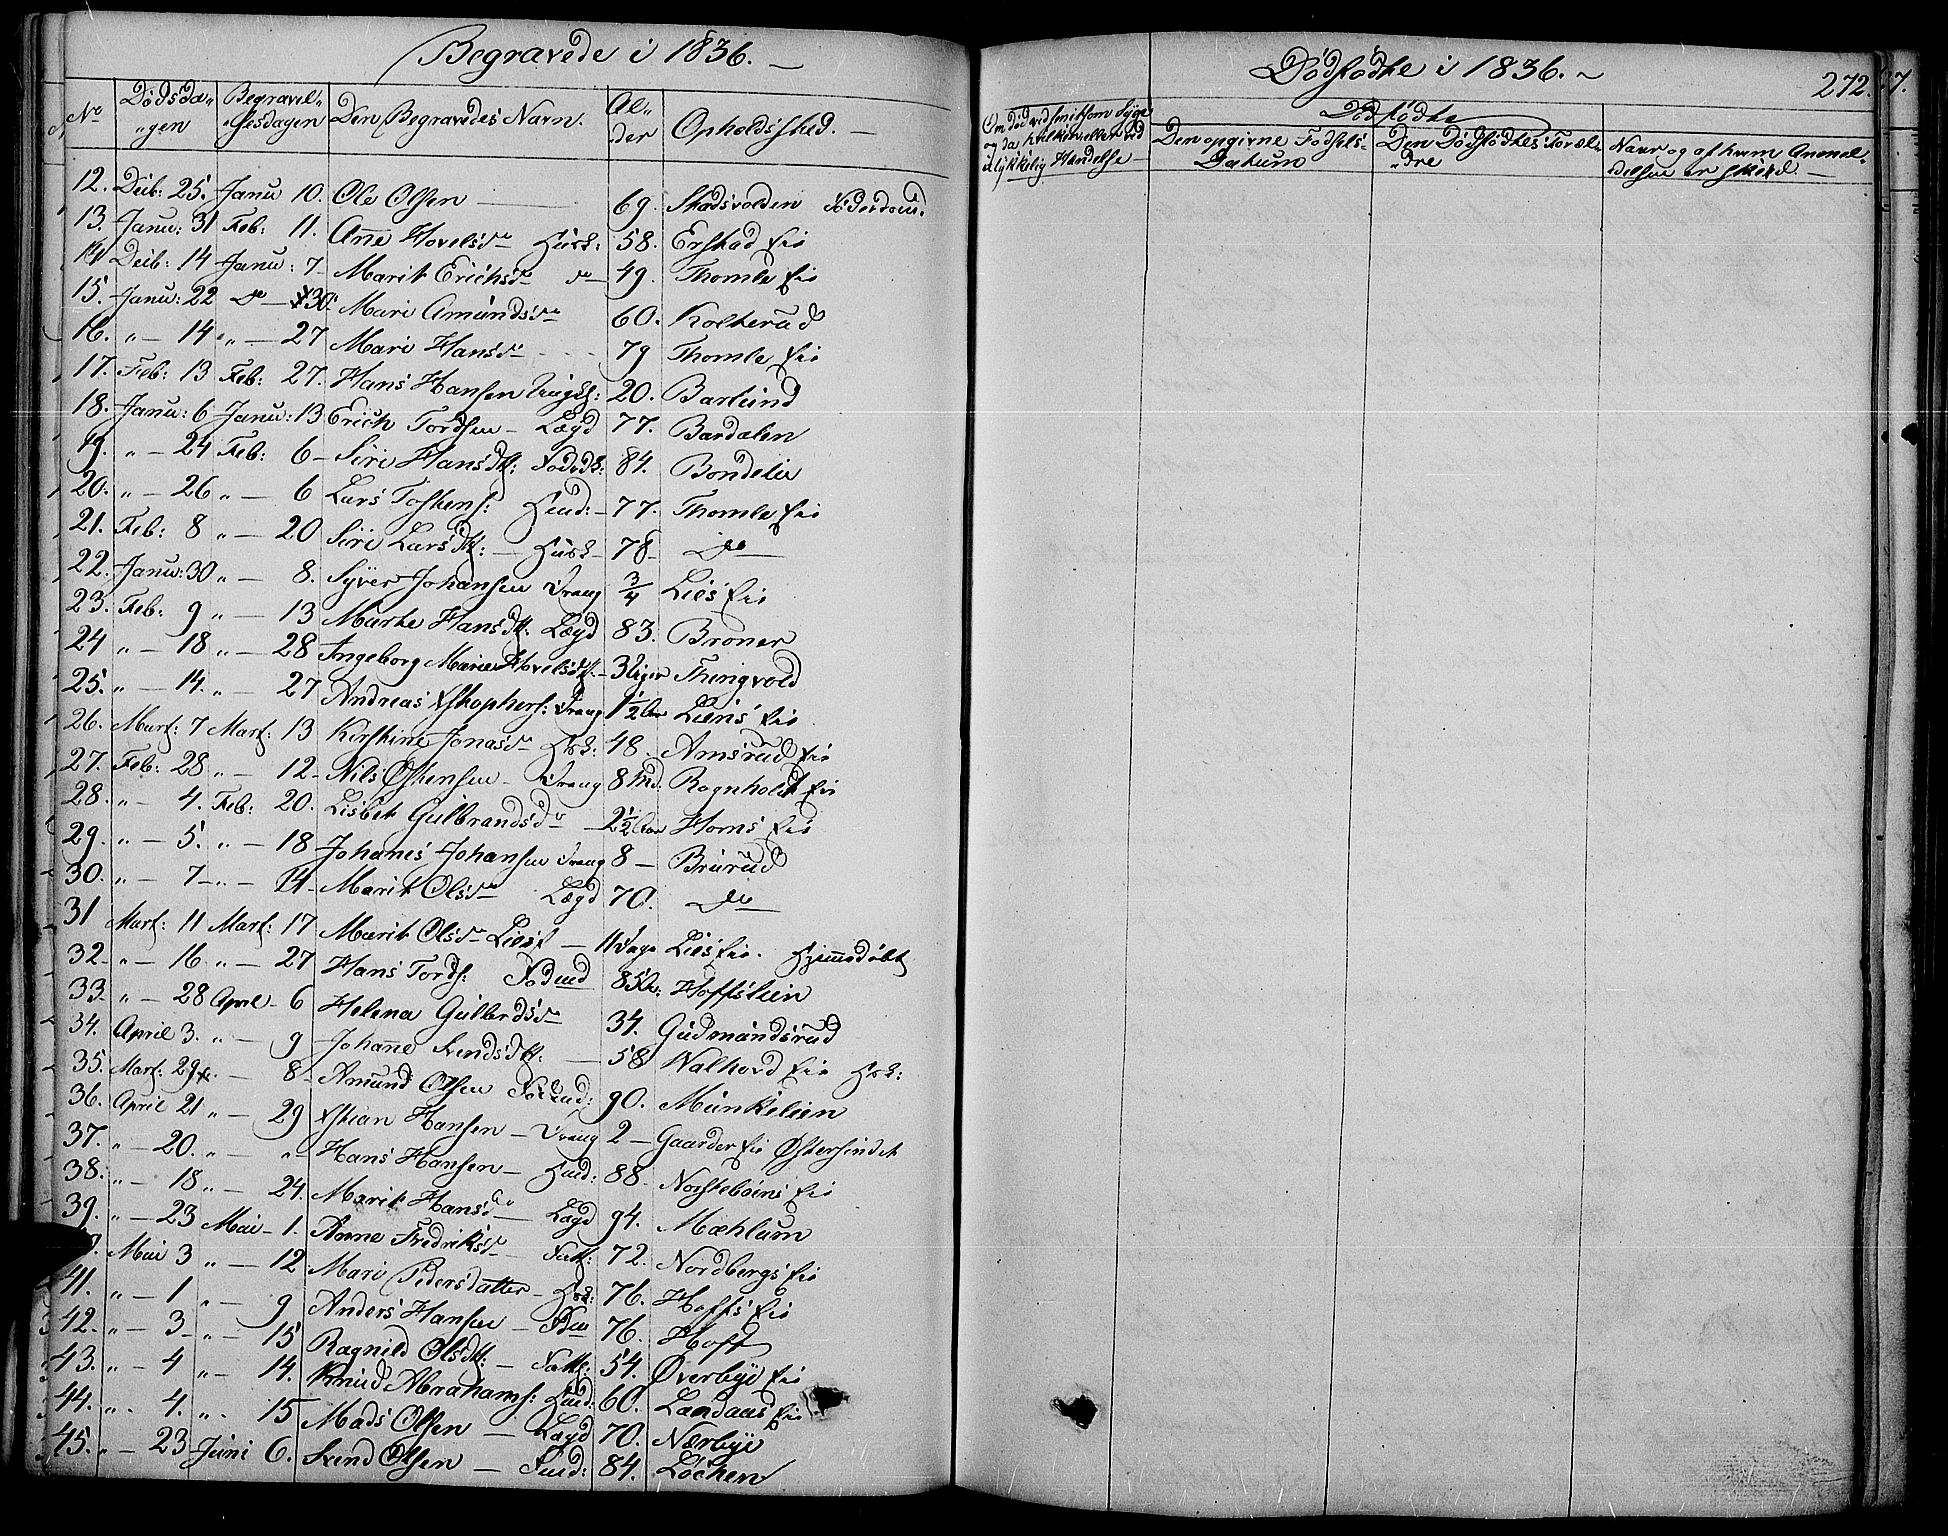 Begravede i 1836. —
No Dødsda„ Begravel„ Den Begravedes Navn. Al„ Opholdssted. —
„gen „sesdagen der
12. Deib: 25. Janu 10. Ole Olsen — 69. Skadsvolden Føderaad.
13. Janu: 31 Feb: 11. Anne Hovelsdr Husk: 58. Erstad eie
14 Deib: 14 Janu: 7 — Marit Erichsdr do — 49. Thomle eie
15. Janu: 22 do — 30. Mari Amundsdr 60. Kolkerud
16. „ — 14 „ — 27 Mari Hansdr 79 Thomle eie
17. Feb: 13 Feb: 27. Hans Hansen Ungk: 20. Barlund
18. Janu: 6 Janu: 13 Erich Tordsen — Lægd 77. Bardalen
19. „ — 24 Feb: 6 — Siri Hansdtt: 84. Bondelie
20. „ — 26 „ — 6 Lars Tostens: Huusd: — 77. Thomle eie
21. Feb: 8 „ — 20 Siri Larsdtt: — Husk — 78 — do
22. Janu: 30 „ — 8. Syver Johansen Dreng 3/4 Lies eie
23. Feb: 9 „ — 13 Marte Hansdtt: Lægd 83. Broner
24 „ — 18 „ — 28 Ingeborg Marie Hovelsdtt. — 3 Uger Thingvold
25. „ — 14. „ — 27 Andreas Xstophers: Dreng 1 1/2 Aar Liens eie
26. Marts: 7 Marts: 13 Kirstine Jonasdr Hsk: 48 Amsrud eie
27. Feb: 28 „ — 12 — Nils Østensen — Dreng 8 Md. Rognholdt eie
28. „ — 4. Feb: 20. Lisbet Gulbrandsdr — 2 1/2 Aar Homs eie
29. „ — 5. „ — 18 Johanes Johansen Dreng 8 — Brurud
30. „ — 7 — „ — 14 — Marit Olsdr Lægd 70. do
31 Marts: 11 Marts: 17 Marit Olsdr Lies — 11 Dage Lies eie. Hjemedøbt
32. „ — 16 „ — 27 Hans Tords: 85 Hoffslien
33. „ — 28 April — 6 Helena Gulbrdsdr 34. Gudmundsrud
34. April 3. „ — 9 Johanne Svendsdtt: — 58 Walhovd eie Hsk:
35. Mart: 29 — 8 — Amund Olsen 90. Munkelien
36. April 21 „ — 29 Xstian Hansen — Dreng 2 — Gaarder eie Østersindet
37. „ — 20. „ — „ — Hans Hansen — Husd: 88 Norstebøens eie
38. „ — 18 „ — 24. Marit Hansdr — Lægd 94. Mæhlum
39. „ — 23 Mai — 1. Anne Fredriksdr — Fatt: 72. Nordbergs eie
Mai 3 „ — 12 Mari Pedersdatter — Hsk: 76. Hoffs eie
41. „ — 1 „ — 9 Anders Hansen — 76. Hoff
42. „ — 3 — „ — 15 Ragnild Olsdtt: — Fatt: 54. Øverbye eie
43. „ — 4 „ — 14. Knud Abrahams: Husd: 60. Landaas eie
44. „ — 4. „ — 15 Mads Olsen — Lægd 70. Nærbye
45. „ — 23 Juni 6. Svend Olsen — 84. Løchen
Dødfødte i 1836. —
272.
Om død ved smitsom Syge og da hvilken eller ved ulykkelig Hændelse —
Dødfødte
Den opgivne Fødsels-Datum
Den Dødfødtes Foræl„dre
Naar og af hvem Anmel„delsen er skeed. —